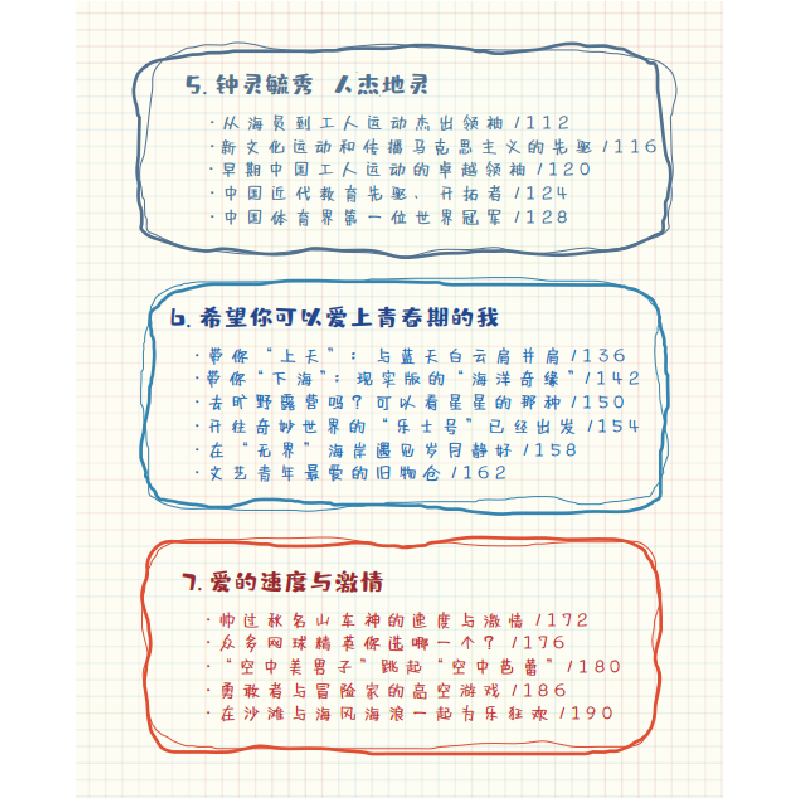 5. 钟灵毓秀 人杰地灵
·从海员到工人运动杰出领袖 /112
·新文化运动和传播马克思主义的先驱 /116
·早期中国工人运动的卓越领袖 /120
·中国近代教育先驱、开拓者 /124
·中国体育界第一位世界冠军 /128
6. 希望你可以爱上青春期的我
·带你“上天”：与蓝天白云肩并肩 /136
·带你“下海”：现实版的“海洋奇缘” /142
·去旷野露营吗？可以看星星的那种 /150
·开往奇妙世界的“乐士号”已经出发 /154
·在“无界”海岸遇见岁月静好 /158
·文艺青年最爱的旧物仓 /162
7. 爱的速度与激情
·帅过秋名山车神的速度与激情 /172
·众多网球精英你选哪一个？ /176
·“空中美男子”跳起“空中芭蕾” /180
·勇敢者与冒险家的高空游戏 /186
·在沙滩与海风海浪一起为乐狂欢 /190